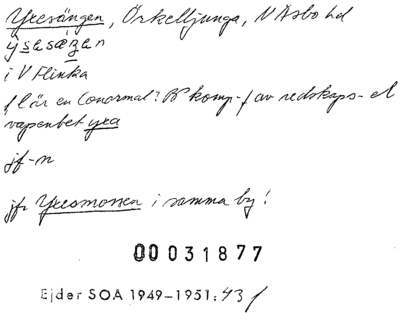 Yxesängen, Örkelljunga, N Åsbo hd
i V Flinka
f lär en (onormal?) komp- f av redskaps- el
vapenbet yxa
jf -n
jfr Yxesmossen i samma by!
00031877
Ejder SOA 1949-1951: 43 f